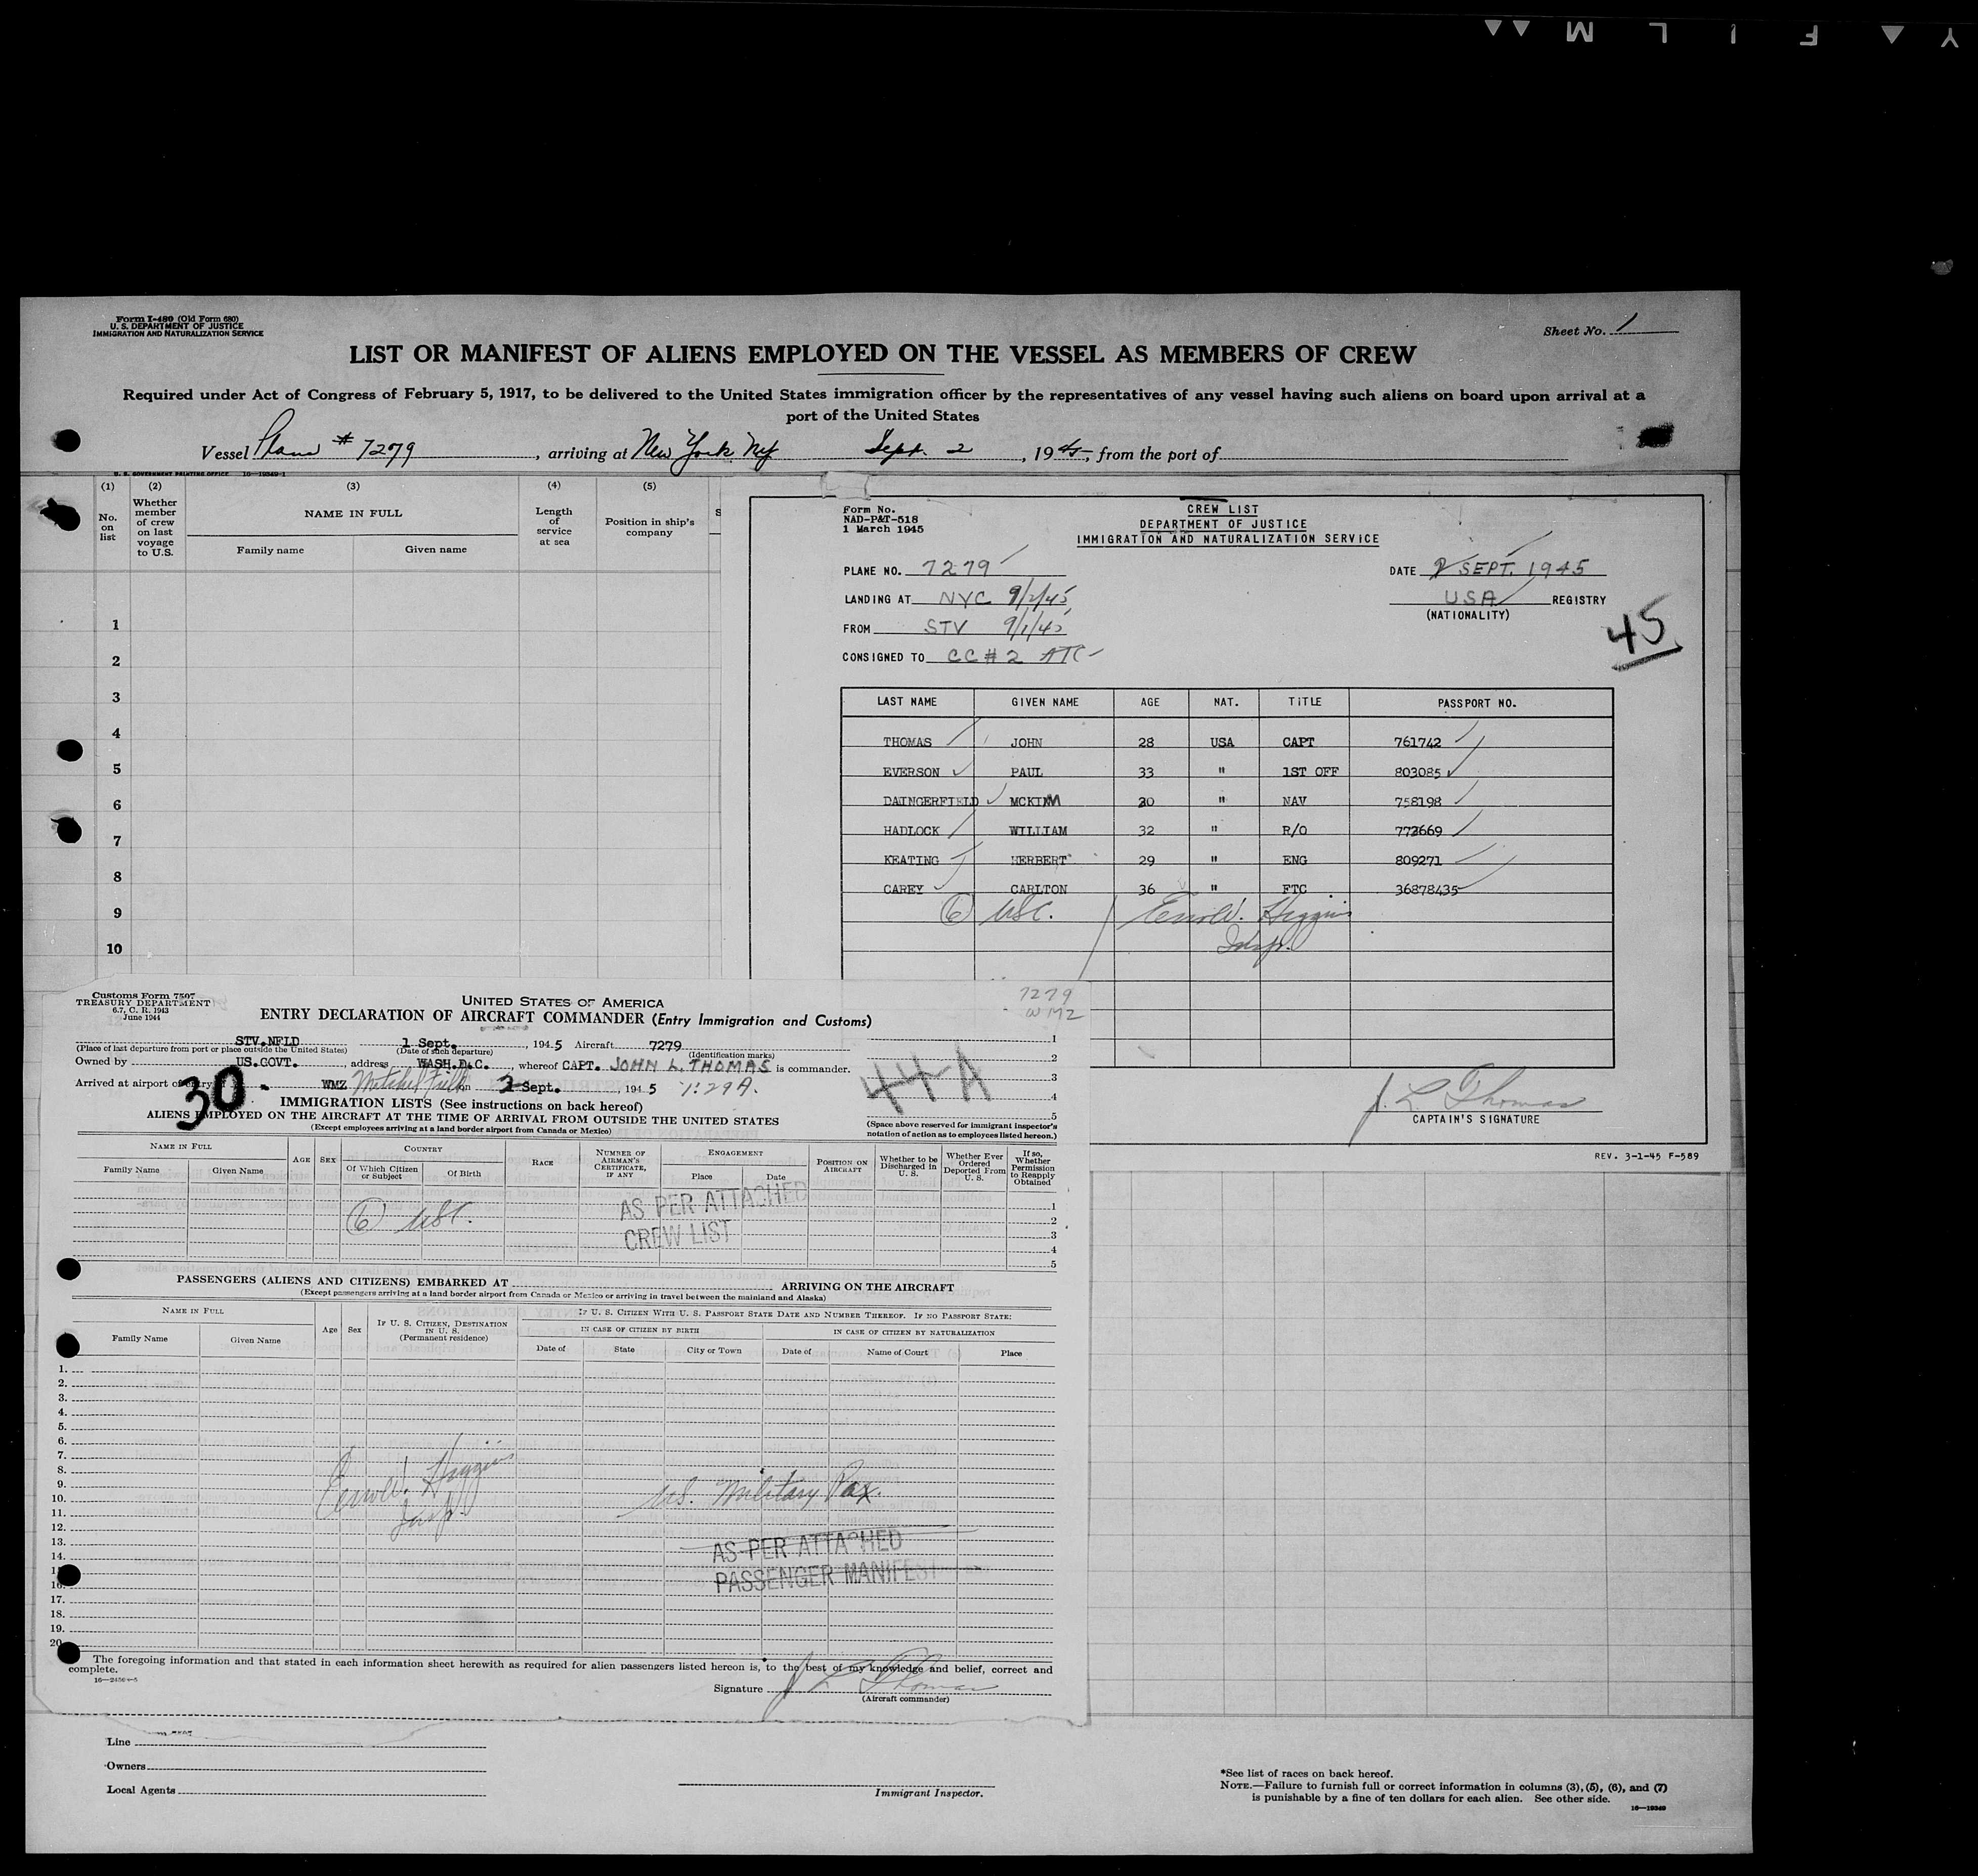 Y ▲ F I L M ▲▲
Form I-480 (Old Form 680)
U. S. DEPARTMENT OF JUSTICE
IMMIGRATION AND NATURALIZATION SERVICE
Sheet No. 1
LIST OR MANIFEST OF ALIENS EMPLOYED ON THE VESSEL AS MEMBERS OF CREW
Required under Act of Congress of February 5, 1917, to be delivered to the United States immigration officer by the representatives of any vessel having such aliens on board upon arrival at a
port of the United States
Vessel Plane # 7279, arriving at New York NY Sept. 2, 1945, from the port of
U. S. GOVERNMENT PRINTING OFFICE 16—19349-1
(1) (2) (3) (4) (5)
No. on list
Whether member of crew on last voyage to U.S.
NAME IN FULL
Family name Given name
Length of service at sea
Position in ship's company
S
1
2
3
4
5
6
7
8
9
10
Form No.
NAD-P&T-518
1 March 1945
CREW LIST
DEPARTMENT OF JUSTICE
IMMIGRATION AND NATURALIZATION SERVICE
PLANE NO. 7279 DATE 2 SEPT. 1945
LANDING AT NYC 9/2/45 USA REGISTRY
(NATIONALITY)
FROM STV 9/1/45
45
CONSIGNED TO CC#2 ATC
LAST NAME GIVEN NAME AGE NAT. TITLE PASSPORT NO.
THOMAS JOHN 28 USA CAPT 761742
EVERSON PAUL 33 " 1ST OFF 803085
DAINGERFIELD MCKIMM 30 " NAV 758198
HADLOCK WILLIAM 32 " R/O 772669
KEATING HERBERT 29 " ENG 809271
CAREY CARLTON 36 " FTC 36878435
(6) USC. Errol W. Higgins
Insp.
J. L. Thomas
CAPTAIN'S SIGNATURE
REV. 3-1-45 F-589
Customs Form 7507
TREASURY DEPARTMENT
6.7, C. R. 1943
June 1944
UNITED STATES OF AMERICA
7279
WMZ
ENTRY DECLARATION OF AIRCRAFT COMMANDER (Entry Immigration and Customs)
STV.NFLD 1 Sept., 1945 Aircraft 7279
(Place of last departure from port or place outside the United States) (Date of such departure) (Identification marks)
Owned by US.GOVT., address WASH.D.C., whereof CAPT. JOHN L. THOMAS is commander.
Arrived at airport of entry of WMZ Mitchel Field on 2 Sept., 1945 7:29A.
30
44A
1
2
3
4
5
(Space above reserved for immigrant inspector's
notation of action as to employees listed hereon.)
IMMIGRATION LISTS (See instructions on back hereof)
ALIENS EMPLOYED ON THE AIRCRAFT AT THE TIME OF ARRIVAL FROM OUTSIDE THE UNITED STATES
(Except employees arriving at a land border airport from Canada or Mexico)
NAME IN FULL
Family Name Given Name
AGE SEX
COUNTRY
Of Which Citizen or Subject Of Birth
RACE
NUMBER OF AIRMAN'S CERTIFICATE, IF ANY
ENGAGEMENT
Place Date
POSITION ON AIRCRAFT
Whether to be Discharged in U. S.
Whether Ever Ordered Deported From U. S.
If so, Whether Permission to Reapply Obtained
(6)
AS PER ATTACHED
CREW LIST
1
2
3
4
5
PASSENGERS (ALIENS AND CITIZENS) EMBARKED AT ARRIVING ON THE AIRCRAFT
(Except passengers arriving at a land border airport from Canada or Mexico or arriving in travel between the mainland and Alaska)
NAME IN FULL
Family Name Given Name
Age Sex
IF U. S. CITIZEN, DESTINATION IN U. S. (Permanent residence)
IF U. S. CITIZEN WITH U. S. PASSPORT STATE DATE AND NUMBER THEREOF. IF NO PASSPORT STATE:
IN CASE OF CITIZEN BY BIRTH IN CASE OF CITIZEN BY NATURALIZATION
Date of State City or Town Date of Name of Court Place
1.
2.
3.
4.
5.
6.
7.
8.
9.
10.
11.
12.
13.
14.
16.
17.
18.
19.
20.
Errol W. Higgins
Insp.
US. Military Pax.
AS PER ATTACHED
PASSENGER MANIFEST
The foregoing information and that stated in each information sheet herewith as required for alien passengers listed hereon is, to the best of my knowledge and belief, correct and
complete.
Signature J. L. Thomas
(Aircraft commander)
Line
Owners
Local Agents
Immigrant Inspector.
*See list of races on back hereof.
NOTE.—Failure to furnish full or correct information in columns (3), (5), (6), and (7)
is punishable by a fine of ten dollars for each alien. See other side.
16—19349